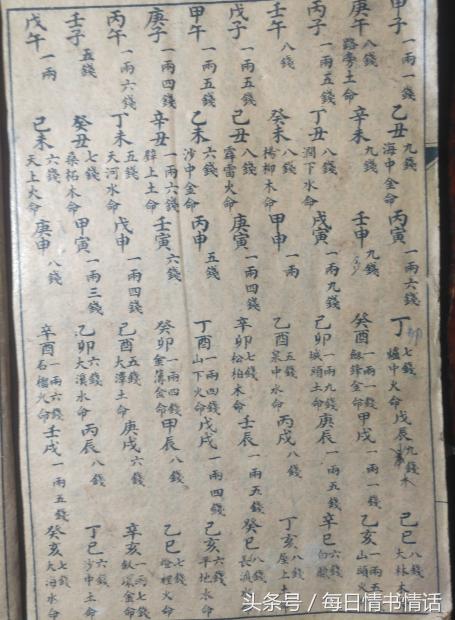 甲子一兩一錢 乙丑九錢海中金命 丙寅一兩六錢 丁卯七錢爐中火命 戊辰九錢木 己巳八錢大林木
庚午八錢路旁土命 辛未九錢 壬申九錢 癸酉一兩一錢劍鋒金命 甲戌一兩一錢 乙亥一兩五山頭火
丙子一兩五錢 丁丑八錢澗下水命 戊寅一兩九錢 己卯一兩九錢城頭土命 庚辰一兩五錢 辛巳六錢白臘
壬午八錢 癸未八錢楊柳木命 甲申一兩 乙酉五錢泉中水命 丙戌八錢 丁亥八錢屋上土
戊子一兩五錢 己丑八錢霹靂火命 庚寅一兩四錢 辛卯七錢松柏木命 壬辰一兩五錢 癸巳八錢長流
甲午一兩五錢 乙未六錢沙中金命 丙申五錢 丁酉一兩四錢山下火命 戊戌一兩四錢 己亥六錢平地水命
庚子一兩四錢 辛丑一兩六錢壁上土命 壬寅六錢 癸卯一兩四錢金簿金命 甲辰八錢 乙巳七錢燈裡火命
丙午一兩六錢 丁未五錢天河水命 戊申一兩四錢 己酉五錢大澤土命 庚戌六錢 辛亥一兩七錢釵環金命
壬子五錢 癸丑七錢桑柘木命 甲寅一兩三錢 乙卯六錢大溪水命 丙辰八錢 丁巳六錢沙中土命
戊午一兩 己未六錢天上火命 庚申八錢 辛酉一兩六錢石榴火命 壬戌一兩五錢 癸亥七錢大海水命
头条号 / 每日情书情话